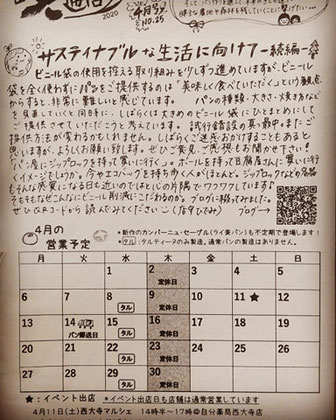 2020
4月号
NO.25
サスティナブルな生活に向けて-続編-
ビニール袋の使用を控える取り組みを少しずつ進めていますが、ビニール
袋を全く使わずにパンをご提供するのは「美味しく食べていただく」という観点
からすると、非常に難しいと感じています。 パンの種類・大きさ・焼き方など
を見直していくと同時に、しばらくは大きめのビニール袋にひとまとめにして
ご提供させていただこうと考えています。試行錯誤の真っ最中またご
提供方法が変わるかもしれません。しばらくご迷惑おかけすることもあると
思いますが、よろしくお願い致します。ぜひご意見ご感想もお聞かせ下さい!
「パン屋にジップロックを持って買いに行く」。ボールを持ってお豆腐屋さんに買いに行
くイメージでしょうか。今やエコバッグを持ち歩く人がほとんど。ジップロックなどの容器
もそんな感覚になる日も近いのではとじの片隅でワクワクしています
そもそもなぜこんなにビニール削減にこだわるのか。ブログに綴ってみました。
ぜひQRコードから読んでみてください ブログ→
4月の
営業予定
*新作のカンパーニュ・セーグル(ライ麦パン)も不定期で登場します!
タル:タルティーヌのみ製造。通常パンの製造はありません。
月 火 水 木 金 土 日
1 2 定休日 3 4 5
6 7 8 タル 9 定休日 10 11★ 12
13 14 パン郵送日 15 タル 16 定休日 17 18 19
20 21 22 タル 23 定休日 24 25 26
27 28 29 タル 30 定休日
★:イベント出店 *イベント出店日も店舗は通常営業しています
4月11日(土)西大寺マルシェ 14時半〜17時@自分薬局西大寺店